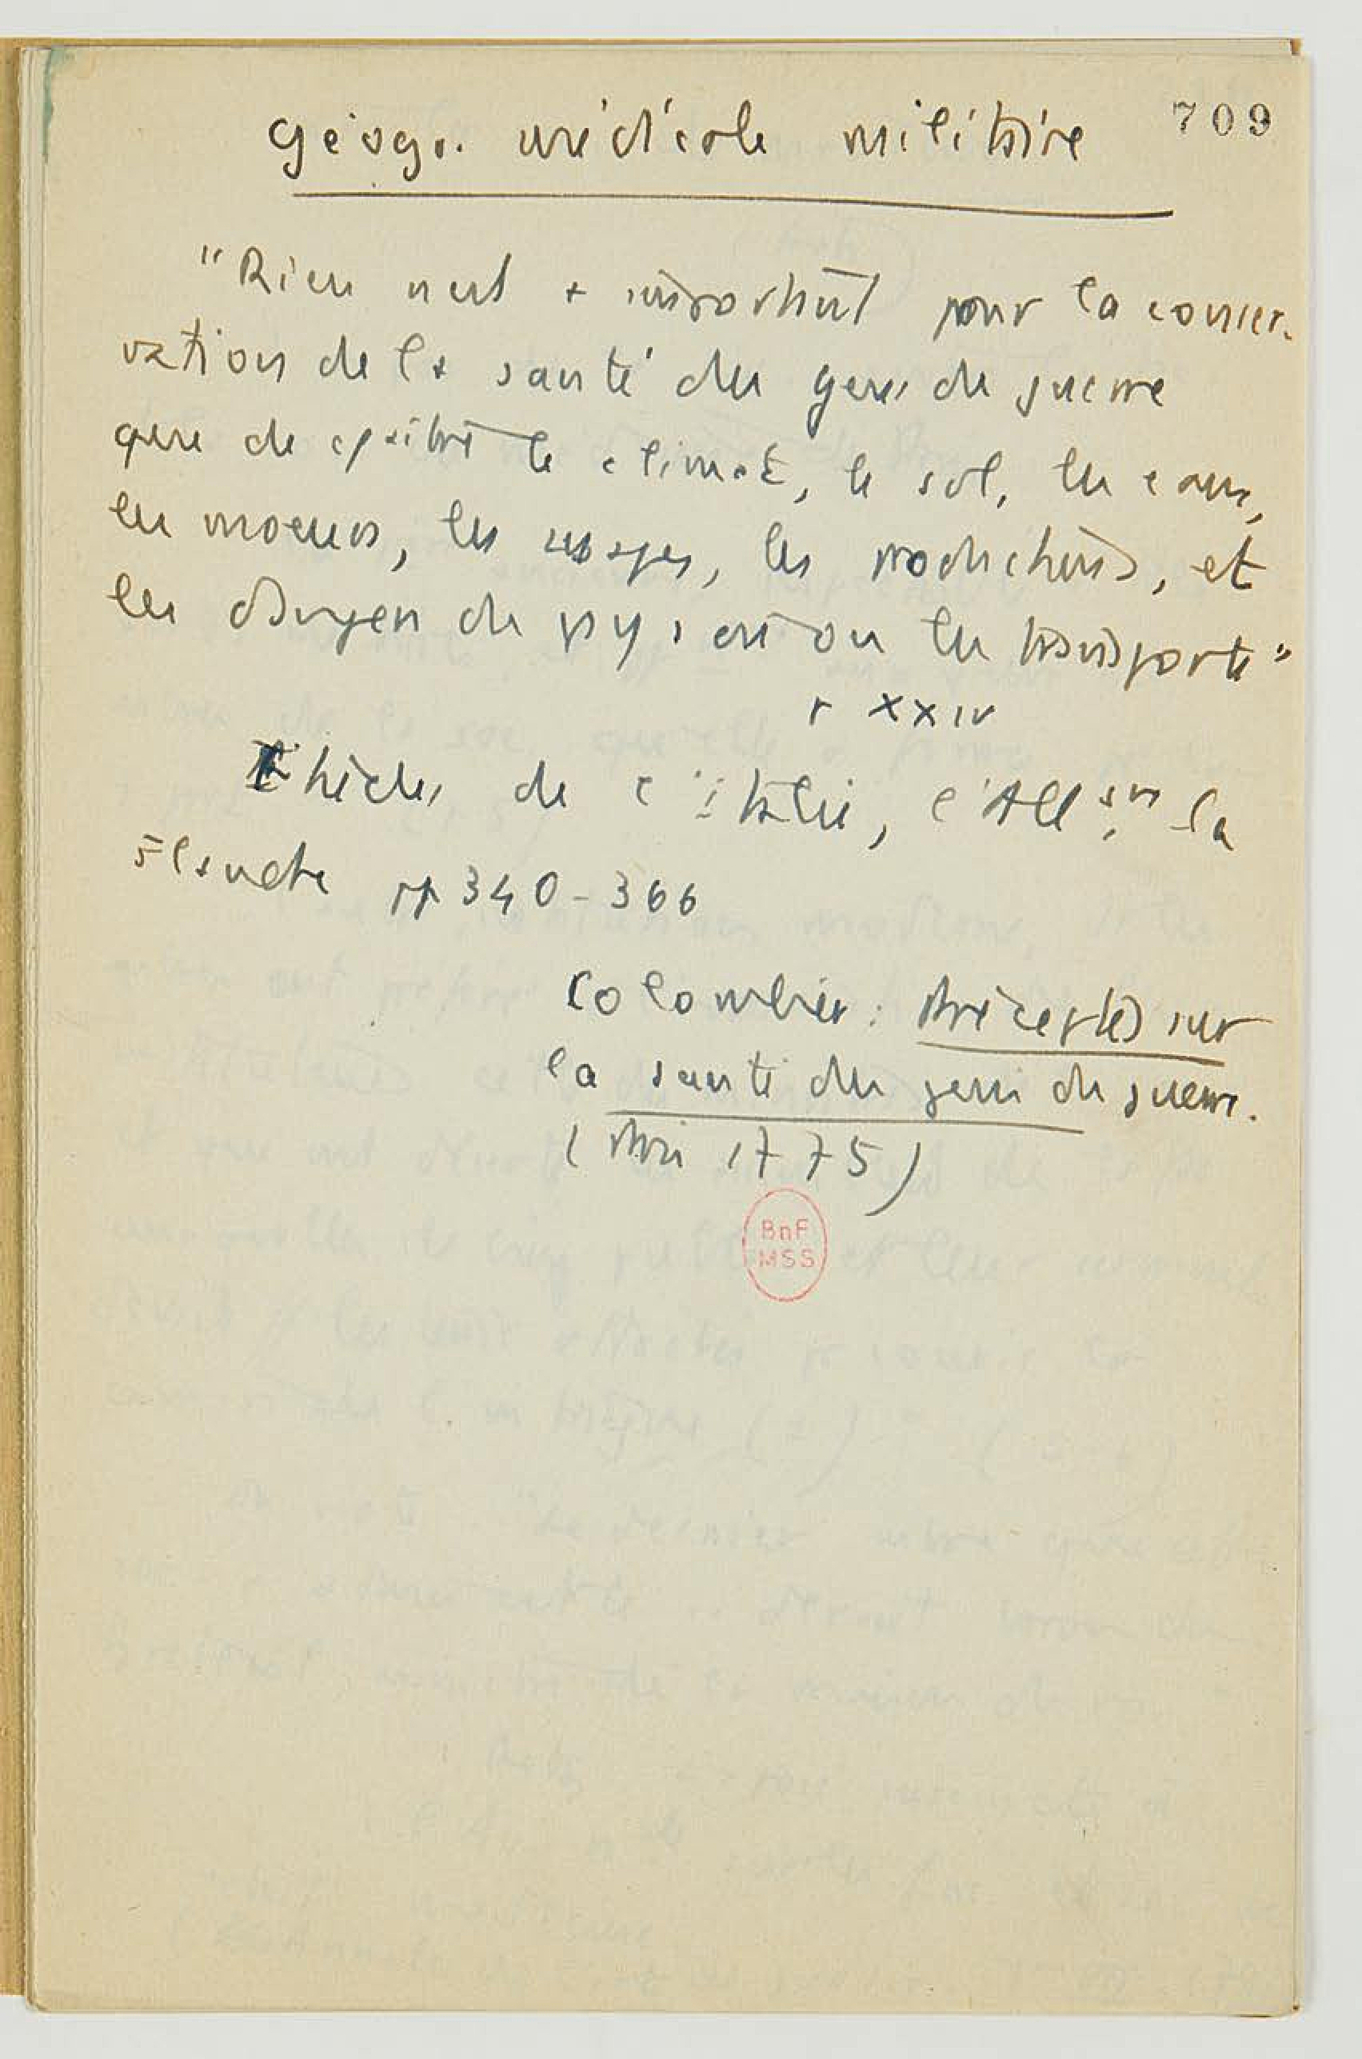 709
Géogr. médicale militaire
"Rien n'est + important pour la conser-
vation de la santé des gens de guerre
que de le climat, le sol, les eaux,
les moeurs, les usages, les productions, et
les dangers du pays où on les transporte"
p XXIV
Etudes de l'Italie, l'All, la
Flandre pp 340-366
Colombier : Préceptes sur
la santé des gens de guerre.
(Paris 1775)
BnF
MSS